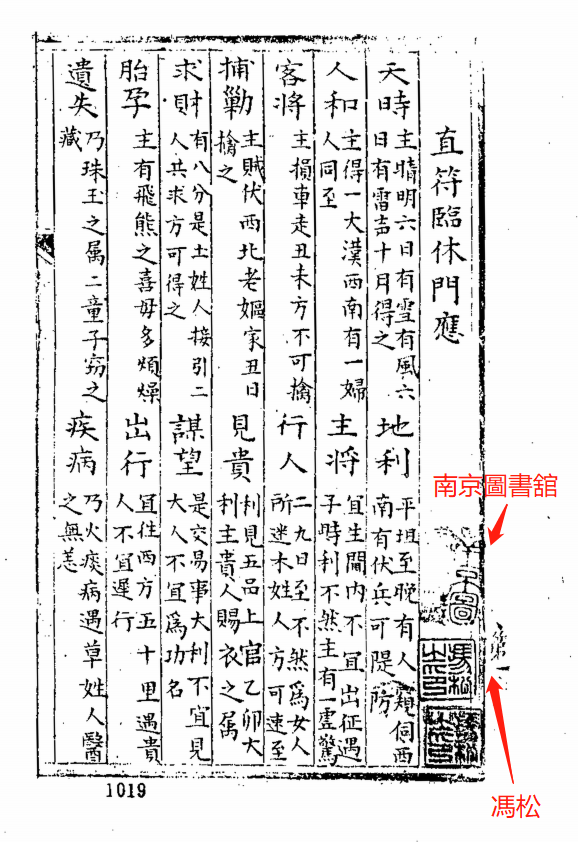 直符臨休門應
天時
主晴明六日有雪有風六
日有雷吉十月得之
地利
平坦至晚有人窺伺西
南有伏兵可隄防
人和
主得一大漢西南有一婦
人同至
主將
宜生闔内不宜出征遇
子時利不然主有一虚驚
客將
主損車走丑未方不可擒
行人
二九日至不然爲女人
所迷木姓人方可速至
捕勦
主賊伏西北老嫗家丑日
擒之
見貴
利見五品上官乙卯大
利主貴人賜衣之属
求財
有八分是土姓人接引二
人共求方可得之
謀望
是交易事大利不宜見
大人不宜爲功名
胎孕
主有飛熊之喜毋多煩燥
出行
宜往西方五十里遇貴
人不宜遲行
遺失
乃珠玉之属二童子窃之
藏
疾病
乃火痰病遇草姓人醫
之無恙
南京圖書舘
馮松
1019